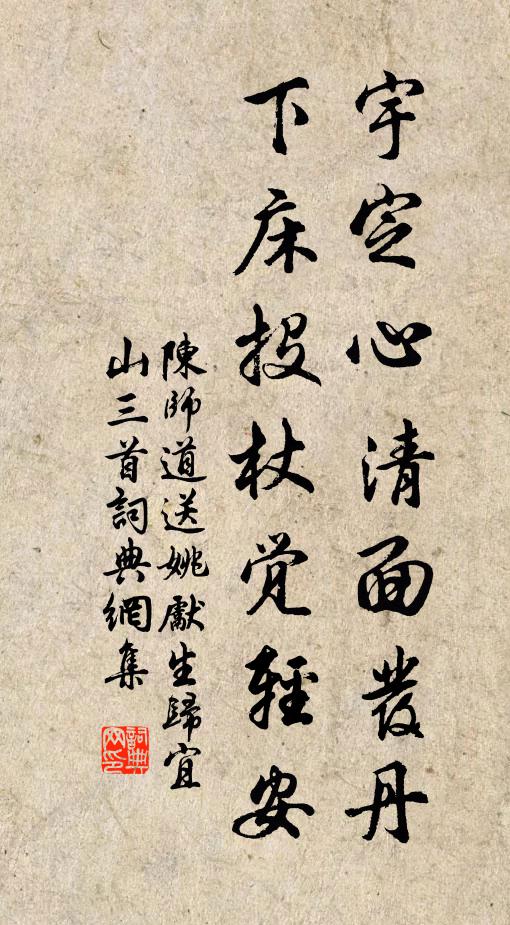 宇定心清面發丹
下床投杖覚輕安
陳師道送姚獻生歸宜
山三首詞典網集
詞典
网印